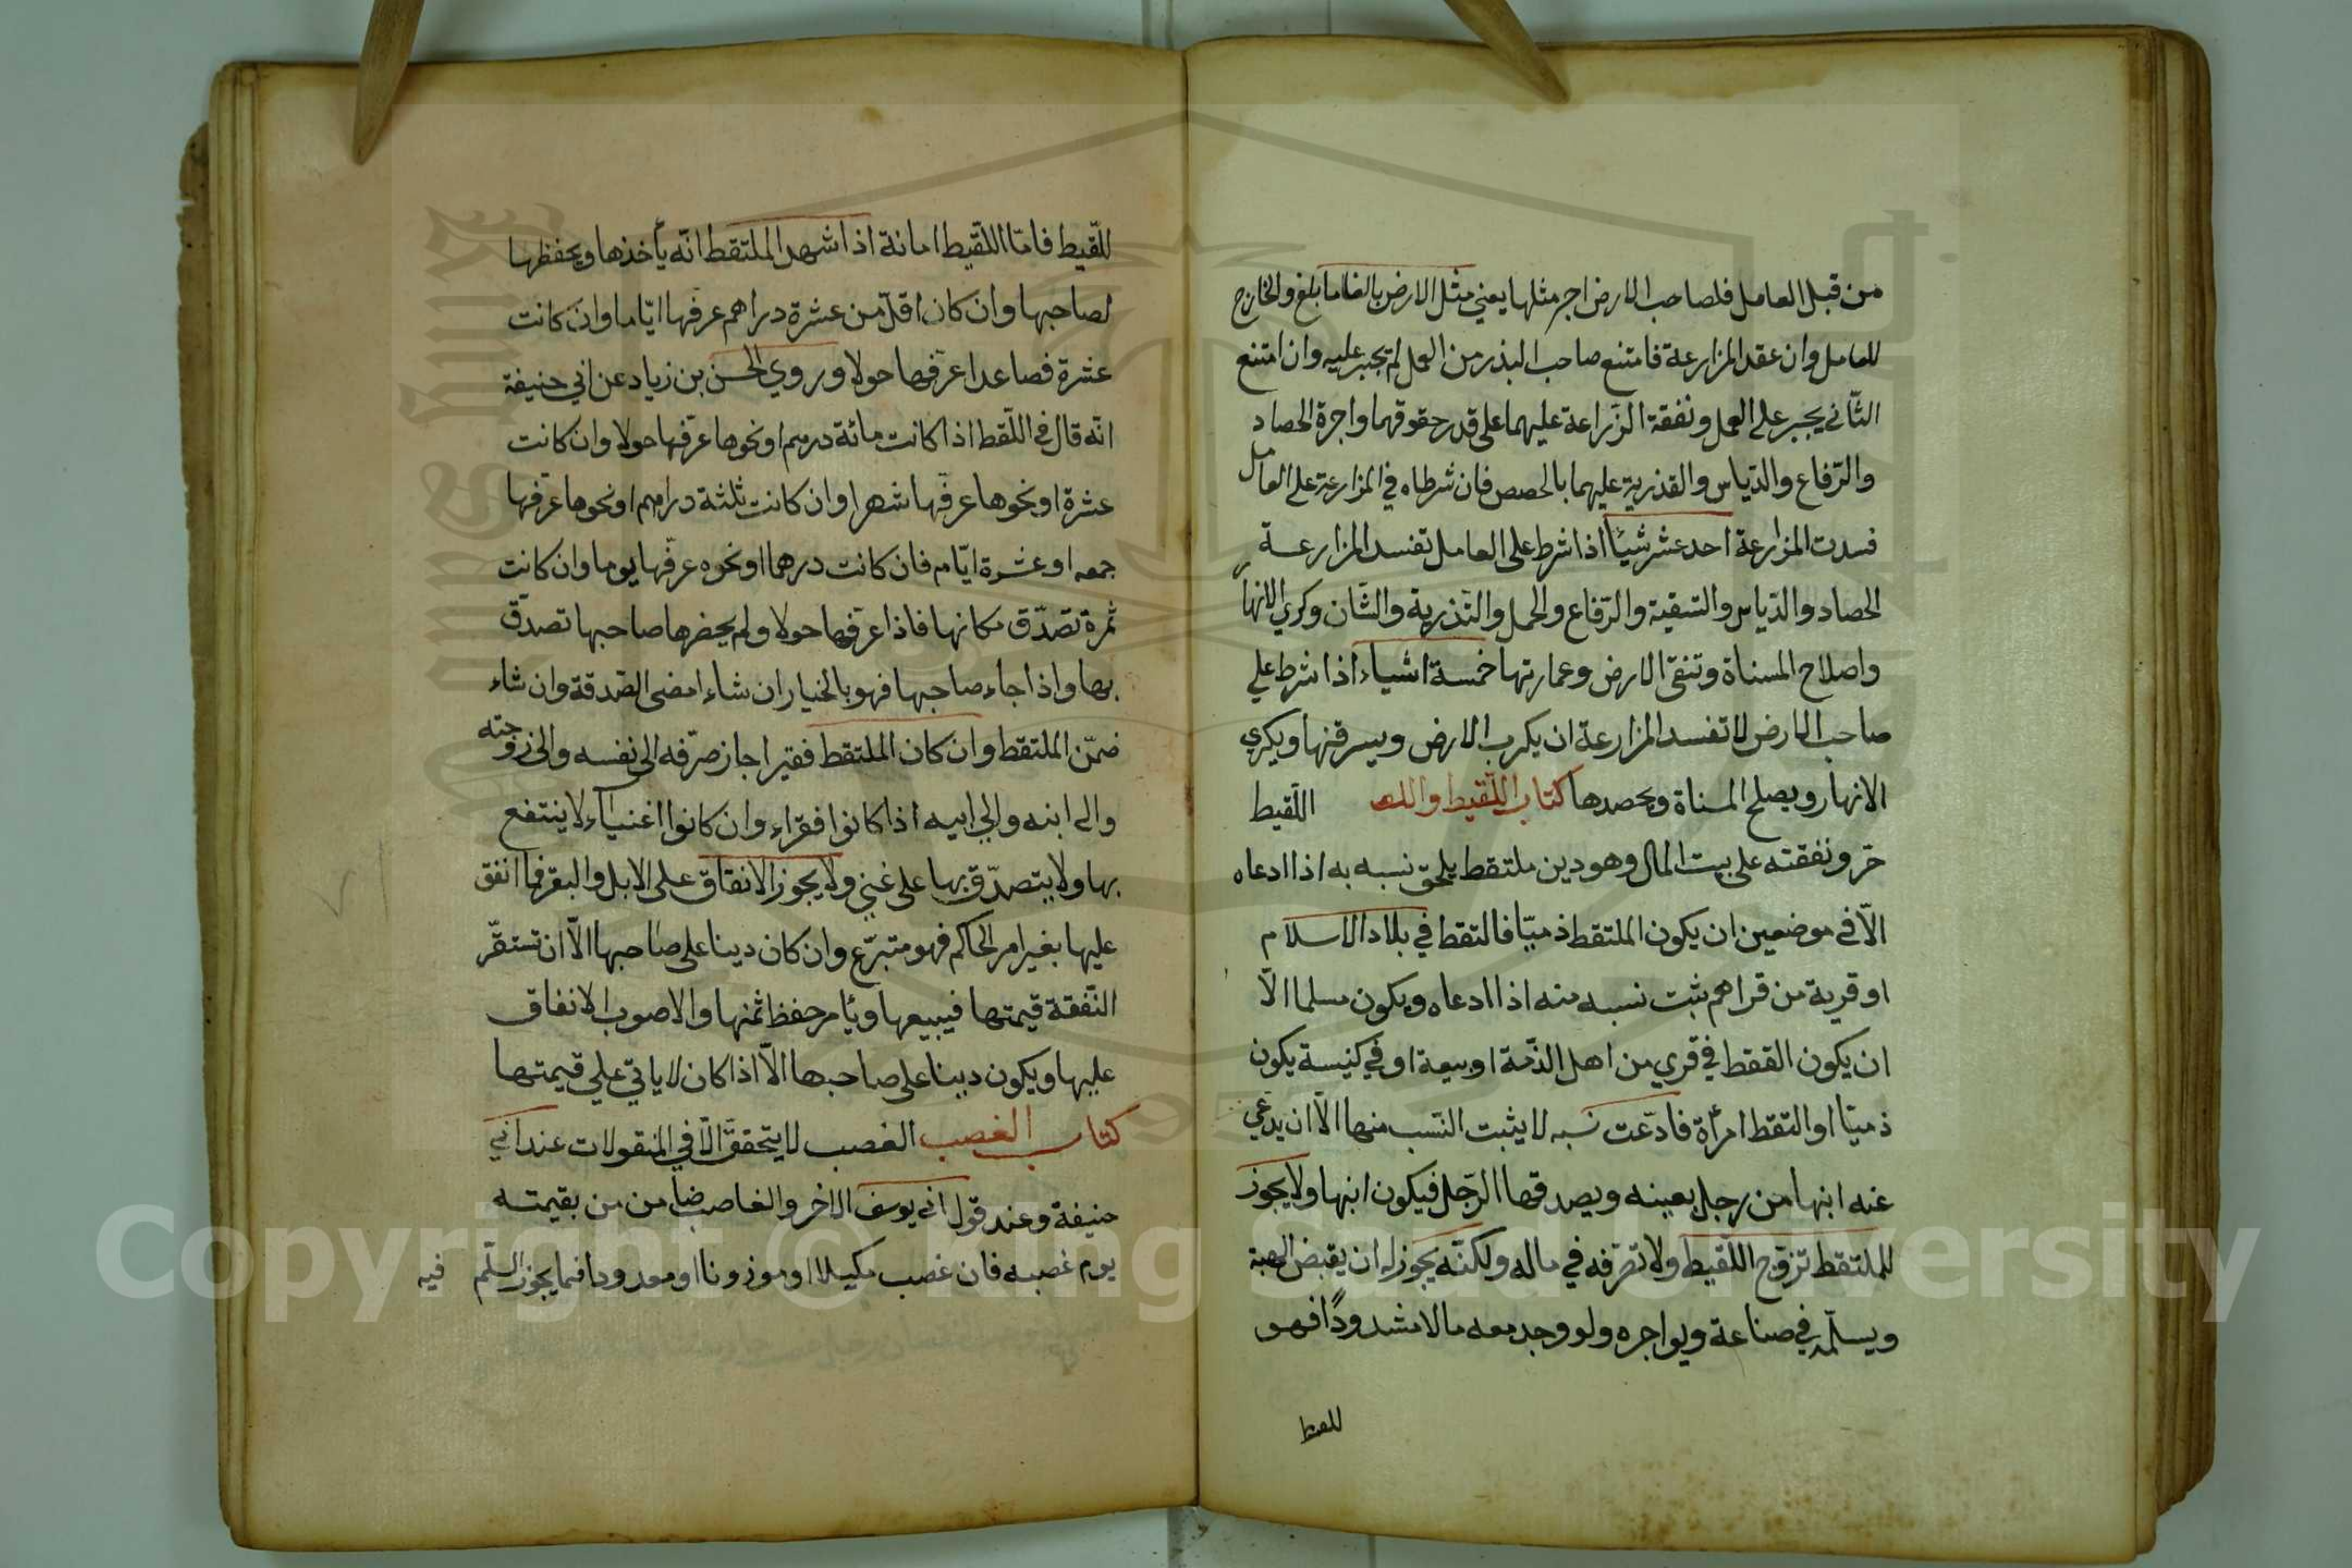 من قبل العامل فلصاحب الارض اجر مثلها يعني مثل الارض بالغا ما بلغ والخارج
للعامل وان عقد المزارعة فامتنع صاحب البذر من العمل لم يجبر عليه وان امتنع
الثّاني يجبر على العمل ونفقة الزّراعة عليهما على قدر حقوقهما واجرة الحصاد
والرّفاع والدّياس والقذرية عليهما بالحصص فان شرطاه في المزارعة على العامل
فسدت المزارعة احد عشر شيئًا اذا شرط على العامل تفسد المزارعة
الحصاد والدّياس والتسقية والرّفاع والحمل والتّذرية والتّبان وكري الانهار
واصلاح المسناة وتنقى الارض وعمارتها خمسة اشياء اذا شرط علي
صاحب الارض لا تفسد المزارعة ان يكرب الارض ويسرقنها ويكري
الانهار ويصلح المسناة ويحصدها كتاب اللّقيط واللقطة اللّقيط
حرّ ونفقته على بيت المال وهو دين ملتقط يلحق نسبه به اذا ادعاه
الاّ في موضعين ان يكون الملتقط ذميّا فالتقط في بلاد الاسلام
او قرية من قراهم ثبت نسبه منه اذا ادعاه ويكون مسلما الاّ
ان يكون القفقط في قري من اهل الذّمة او بيعة او في كنيسة يكون
ذميّا او التقط امرأة فادّعت نسبه لا يثبت النّسب منها الاّ ان يدّعي
عنه ابنها من رجل بعينه ويصدقها الرّجل فيكون ابنها ولا يجوز
للملتقط تزوّج اللّقيط ولا تصّرفه في ماله ولكنّه يجوز له ان يقبض الهبة
ويسلّمه في صناعة ويواجره ولو وجد معه مالا مشدودًا فهو
للقيط
للّقيط فامّا اللّقيط امانة اذا اشهد الملتقط انّه يأخذها ويحفظها
لصاحبها وان كان اقلّ من عشرة دراهم عرّفها ايّاما وان كانت
عشرة فصاعدا عرّفها حولا وروي الحسن بن زياد عن ابي حنيفة
انّه قال في اللّقط اذا كانت مائة درهم او نحوها عرّفها حولا وان كانت
عشرة او نحوها عرّفها شهرا وان كانت ثلثة دراهم او نحوها عرّفها
جمعه او عشرة ايّام فان كانت درهما او نحوه عرّفها يوما وان كانت
ثمرة تصدّق مكانها فاذا عرّفها حولا ولم يحضرها صاحبها تصدّق
بها واذا جاء صاحبها فهو بالخيار ان شاء امضى الصّدقة وان شاء
ضمّن الملتقط وان كان الملتقط فقيرا جاز صرّفه الى نفسه والى زوجته
والى ابنه والي ابيه اذا كانوا فقرّاء وان كانوا اغنياء لا ينتفع
بها ولا يتصدّق بها على غني ولا يجوز الانفاق على الابل والبقر فما انفق
عليها بغير امر الحاكم فهو متبرّع وان كان دينا على صاحبها الاّ ان تستقّر
النّفقة قيمتها فيبيعها ويأمر حفظ ثمنها والاصوب الانفاق
عليها ويكون دينا على صاحبها الاّ اذا كان لا ياتي علي قيمتها
كتاب الغصب الغصب لا يتحقق الاّ في المنقولات عند ابي
حنيفة وعند قول ابي يوسف الاخر والغاصب ضامن من بقيمته
يوم غصبه فان غصب مكيلا او موزونا او معدودا فما يجوز السّلم
فيه
Copyright © King Saud University